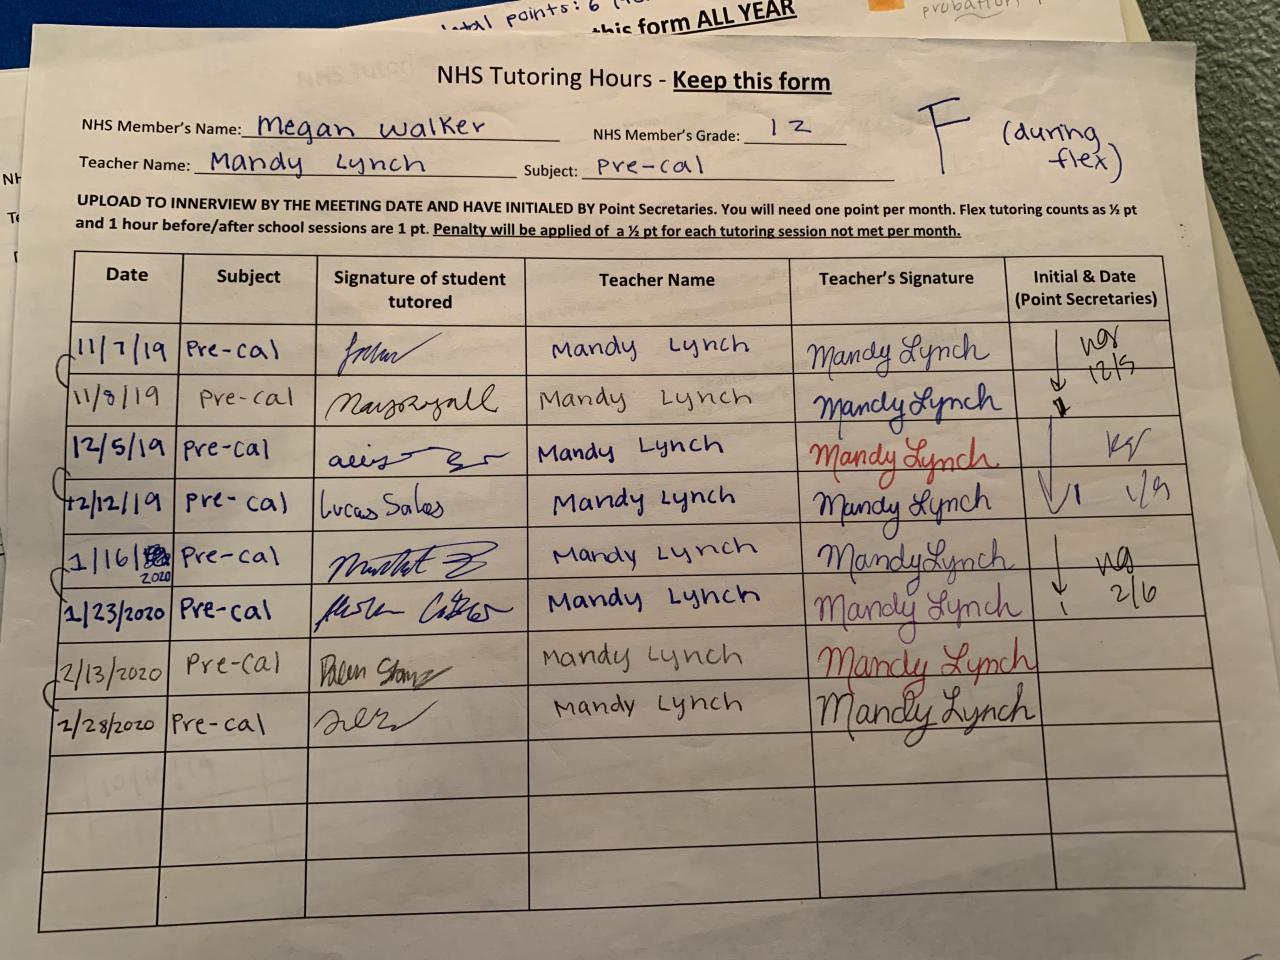 total points: 6
this form ALL YEAR
probation,
NHS Tutoring Hours - Keep this form
NHS Member's Name: Megan Walker NHS Member's Grade: 12
F (during flex)
Teacher Name: Mandy Lynch Subject: Pre-cal
UPLOAD TO INNERVIEW BY THE MEETING DATE AND HAVE INITIALED BY Point Secretaries. You will need one point per month. Flex tutoring counts as ½ pt
and 1 hour before/after school sessions are 1 pt. Penalty will be applied of a ½ pt for each tutoring session not met per month.
Date Subject Signature of student tutored Teacher Name Teacher's Signature Initial & Date (Point Secretaries)
11/7/19 Pre-cal Mandy Lynch Mandy Lynch 12/5
11/8/19 Pre-cal Mandy Lynch Mandy Lynch 1
12/5/19 Pre-cal Mandy Lynch Mandy Lynch
12/12/19 Pre-cal Lucas Sales Mandy Lynch Mandy Lynch 1 1/9
1/16/2020 Pre-cal Mandy Lynch Mandy Lynch
1/23/2020 Pre-cal Mandy Lynch Mandy Lynch 1 2/6
2/13/2020 Pre-Cal Mandy Lynch Mandy Lynch
2/28/2020 Pre-cal Mandy Lynch Mandy Lynch